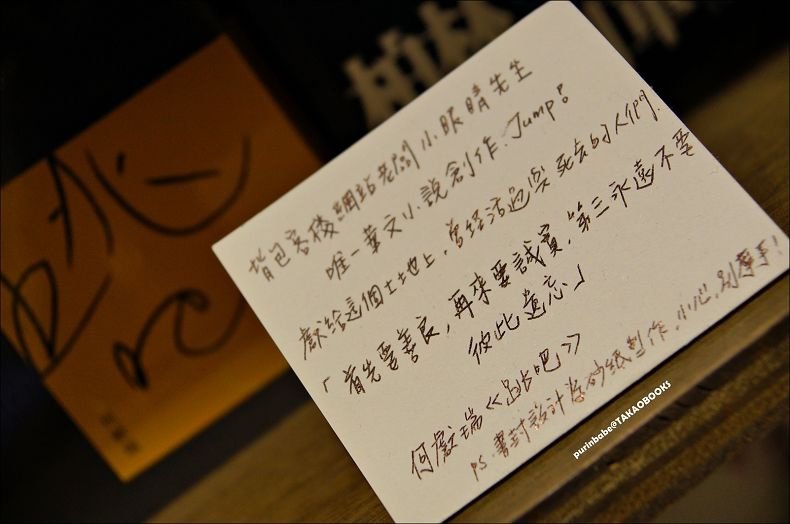 背包客棧網站老闆小眼睛先生
唯一華文小說創作、Jump!
獻給這個土地上,曾經活過與死去的人們.
「首先要善良,再來要誠實,第三永遠不要
彼此遺忘」
何獻瑞《跳吧》
PS.書封設計為砂紙製作,小心別磨手!
purinbabe@TAKAOBOOKS